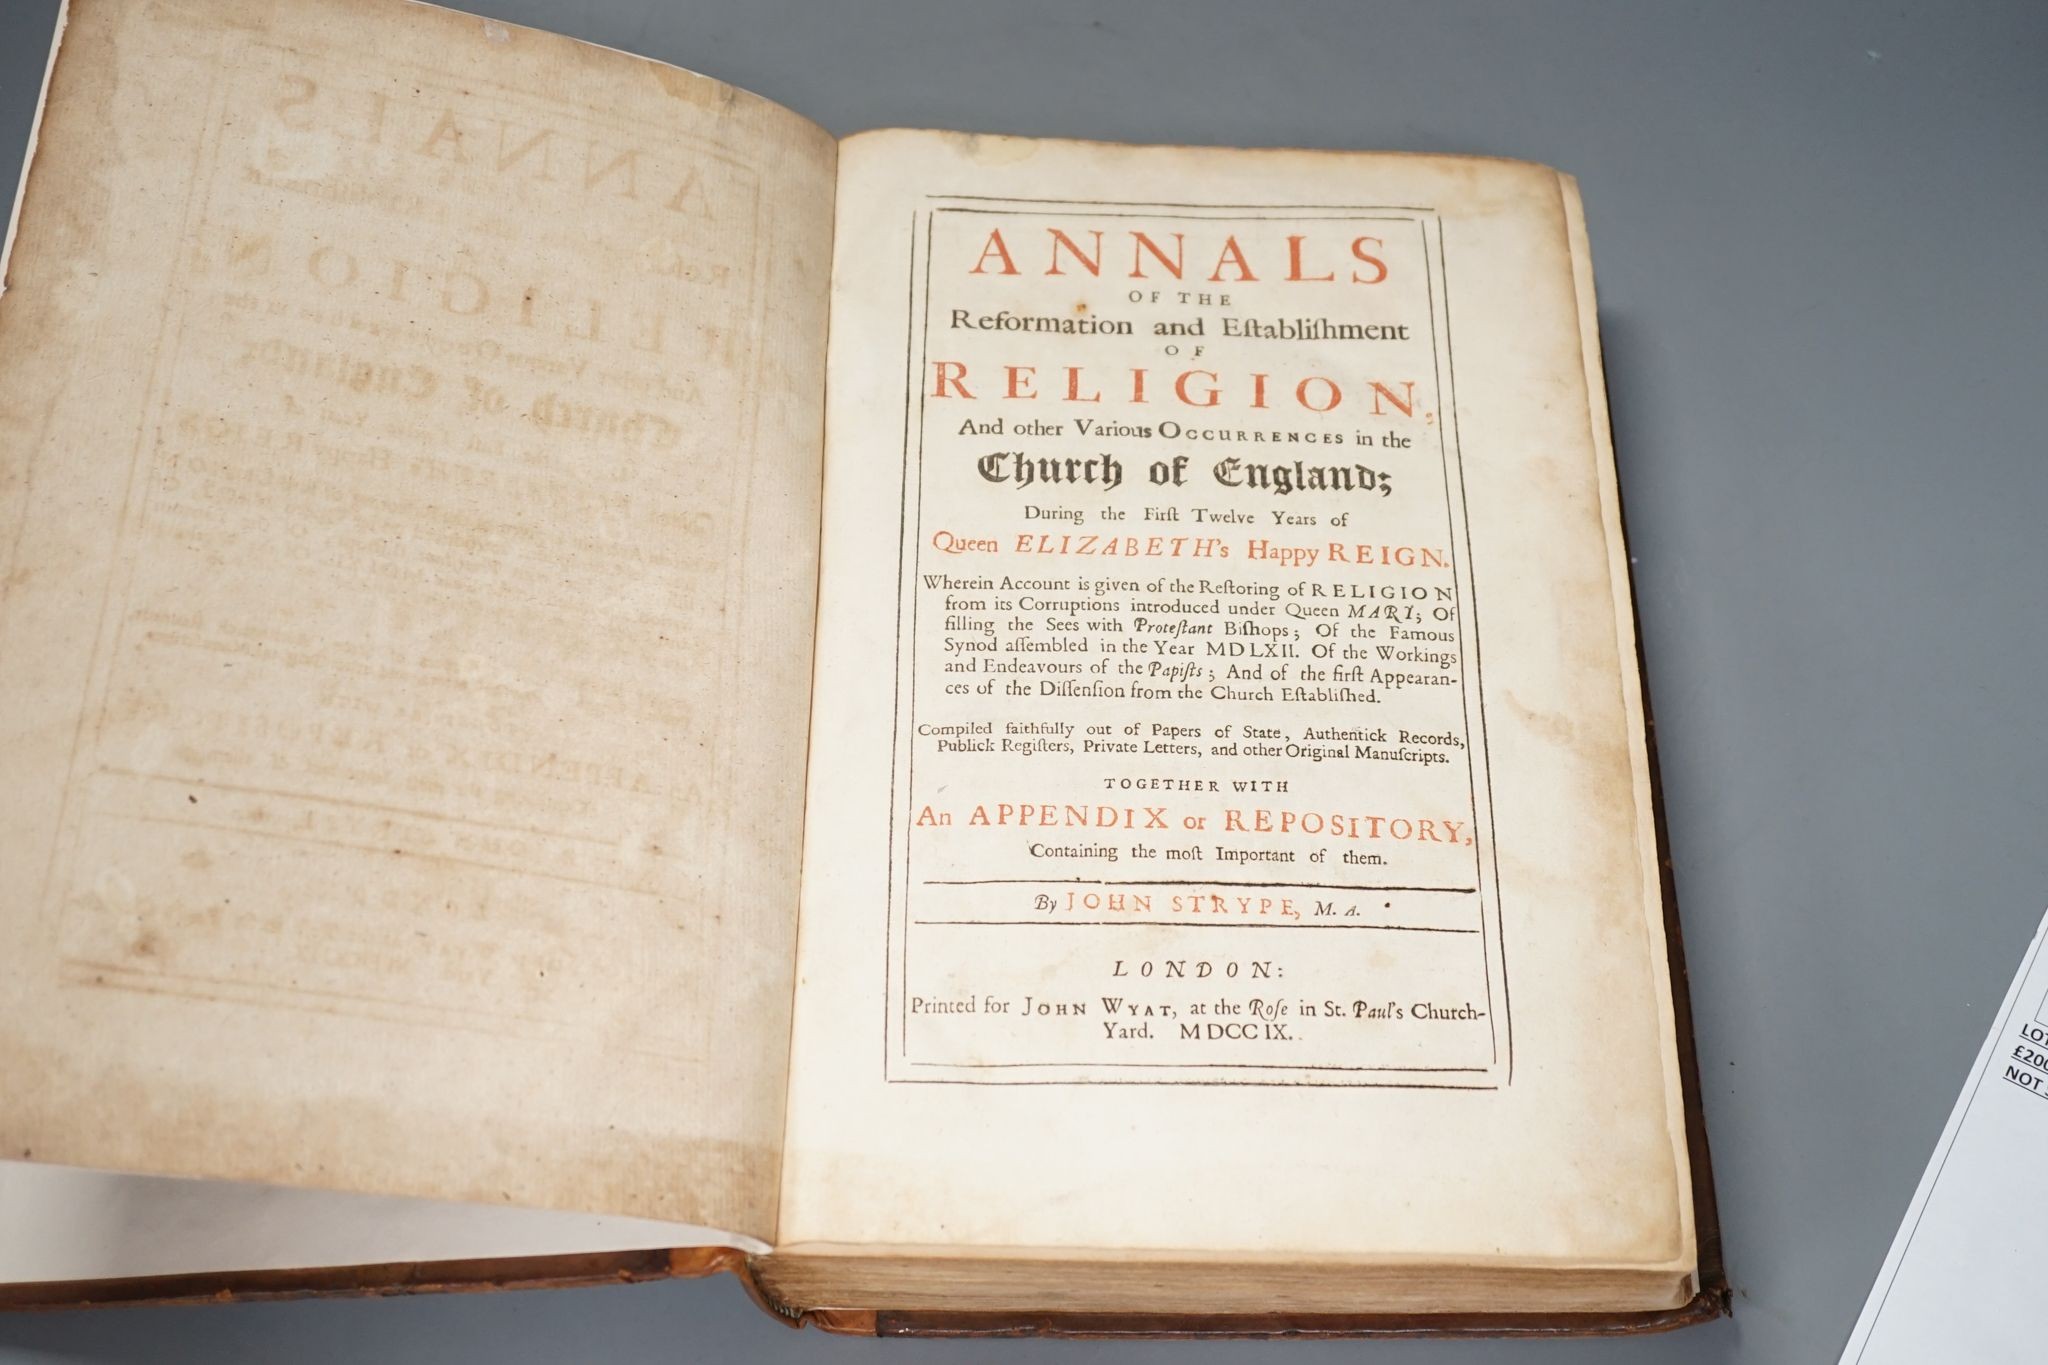 ANNALS
OF THE
Reformation and Eſtabliſhment
OF
RELIGION,
And other Various OCCURRENCES in the
Church of England;
During the Firſt Twelve Years of
Queen ELIZABETH's Happy REIGN.
Wherein Account is given of the Reſtoring of RELIGION
from its Corruptions introduced under Queen MARY; Of
filling the Sees with Proteſtant Biſhops; Of the Famous
Synod aſſembled in the Year MDLXII. Of the Workings
and Endeavours of the Papiſts; And of the firſt Appearan-
ces of the Diſſenſion from the Church Eſtabliſhed.
Compiled faithfully out of Papers of State, Authentick Records,
Publick Regiſters, Private Letters, and other Original Manuſcripts.
TOGETHER WITH
An APPENDIX or REPOSITORY,
Containing the moſt Important of them.
By JOHN STRYPE, M. A.
LONDON:
Printed for JOHN WYAT, at the Roſe in St. Paul's Church-
Yard. MDCCIX.
LOT
£200
NOT